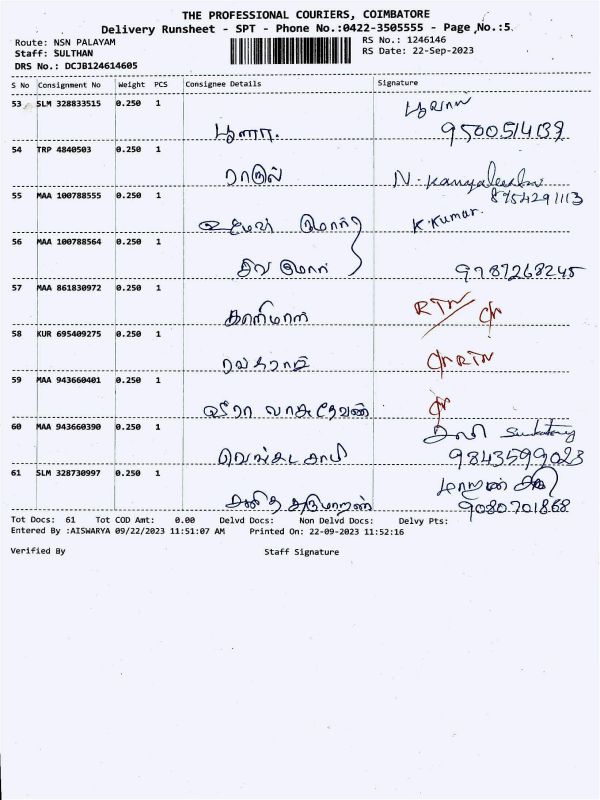 THE PROFESSIONAL COURIERS, COIMBATORE
Delivery Runsheet - SPT - Phone No.:0422-3505555 - Page No.:5
Route: NSN PALAYAM RS No.: 1246146
Staff: SULTHAN RS Date: 22-Sep-2023
DRS No.: DCJB124614605
S No Consignment No Weight PCS Consignee Details Signature
53 SLM 328833515 0.250 1
பூளா. 9500514139
54 TRP 4840503 0.250 1
ராகுல் N.
55 MAA 100788555 0.250 1 8754291113
K.Kumar.
56 MAA 100788564 0.250 1
9787268245
57 MAA 861830972 0.250 1 RTN
காளிமாள்
58 KUR 695409275 0.250 1 RTN
59 MAA 943660401 0.250 1
வீரா வாசுதேவன்
60 MAA 943660390 0.250 1
வெங்கடசாமி 9843599023
61 SLM 328730997 0.250 1
9080701868
Tot Docs: 61 Tot COD Amt: 0.00 Delvd Docs: Non Delvd Docs: Delvy Pts:
Entered By :AISWARYA 09/22/2023 11:51:07 AM Printed On: 22-09-2023 11:52:16
Verified By Staff Signature